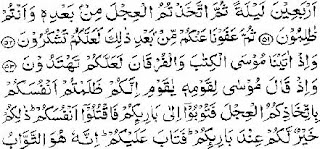 اَرۡبَعِيۡنَ لَيۡلَةً ثُمَّ اتَّخَذۡتُمُ الۡعِجۡلَ مِنۡۢ بَعۡدِهٖ وَاَنۡتُمۡ
ظٰلِمُوۡنَ ﴿۵۱﴾ ثُمَّ عَفَوۡنَا عَنۡكُمۡ مِّنۡۢ بَعۡدِ ذٰلِكَ لَعَلَّكُمۡ تَشۡكُرُوۡنَ ﴿۵۲﴾
وَاِذۡ اٰتَيۡنَا مُوۡسَى الۡكِتٰبَ وَالۡفُرۡقَانَ لَعَلَّكُمۡ تَهۡتَدُوۡنَ ﴿۵۳﴾
وَاِذۡ قَالَ مُوۡسٰى لِقَوۡمِهٖ يٰقَوۡمِ اِنَّكُمۡ ظَلَمۡتُمۡ اَنۡفُسَكُمۡ
بِاتِّخَاذِكُمُ الۡعِجۡلَ فَتُوۡبُوۡآ اِلٰى بَارِئِكُمۡ فَاقۡتُلُوۡٓا اَنۡفُسَكُمۡ ذٰلِكُمۡ
خَيۡرٌ لَّكُمۡ عِنۡدَ بَارِئِكُمۡ فَتَابَ عَلَيۡكُمۡ اِنَّهٗ هُوَ التَّوَّابُ